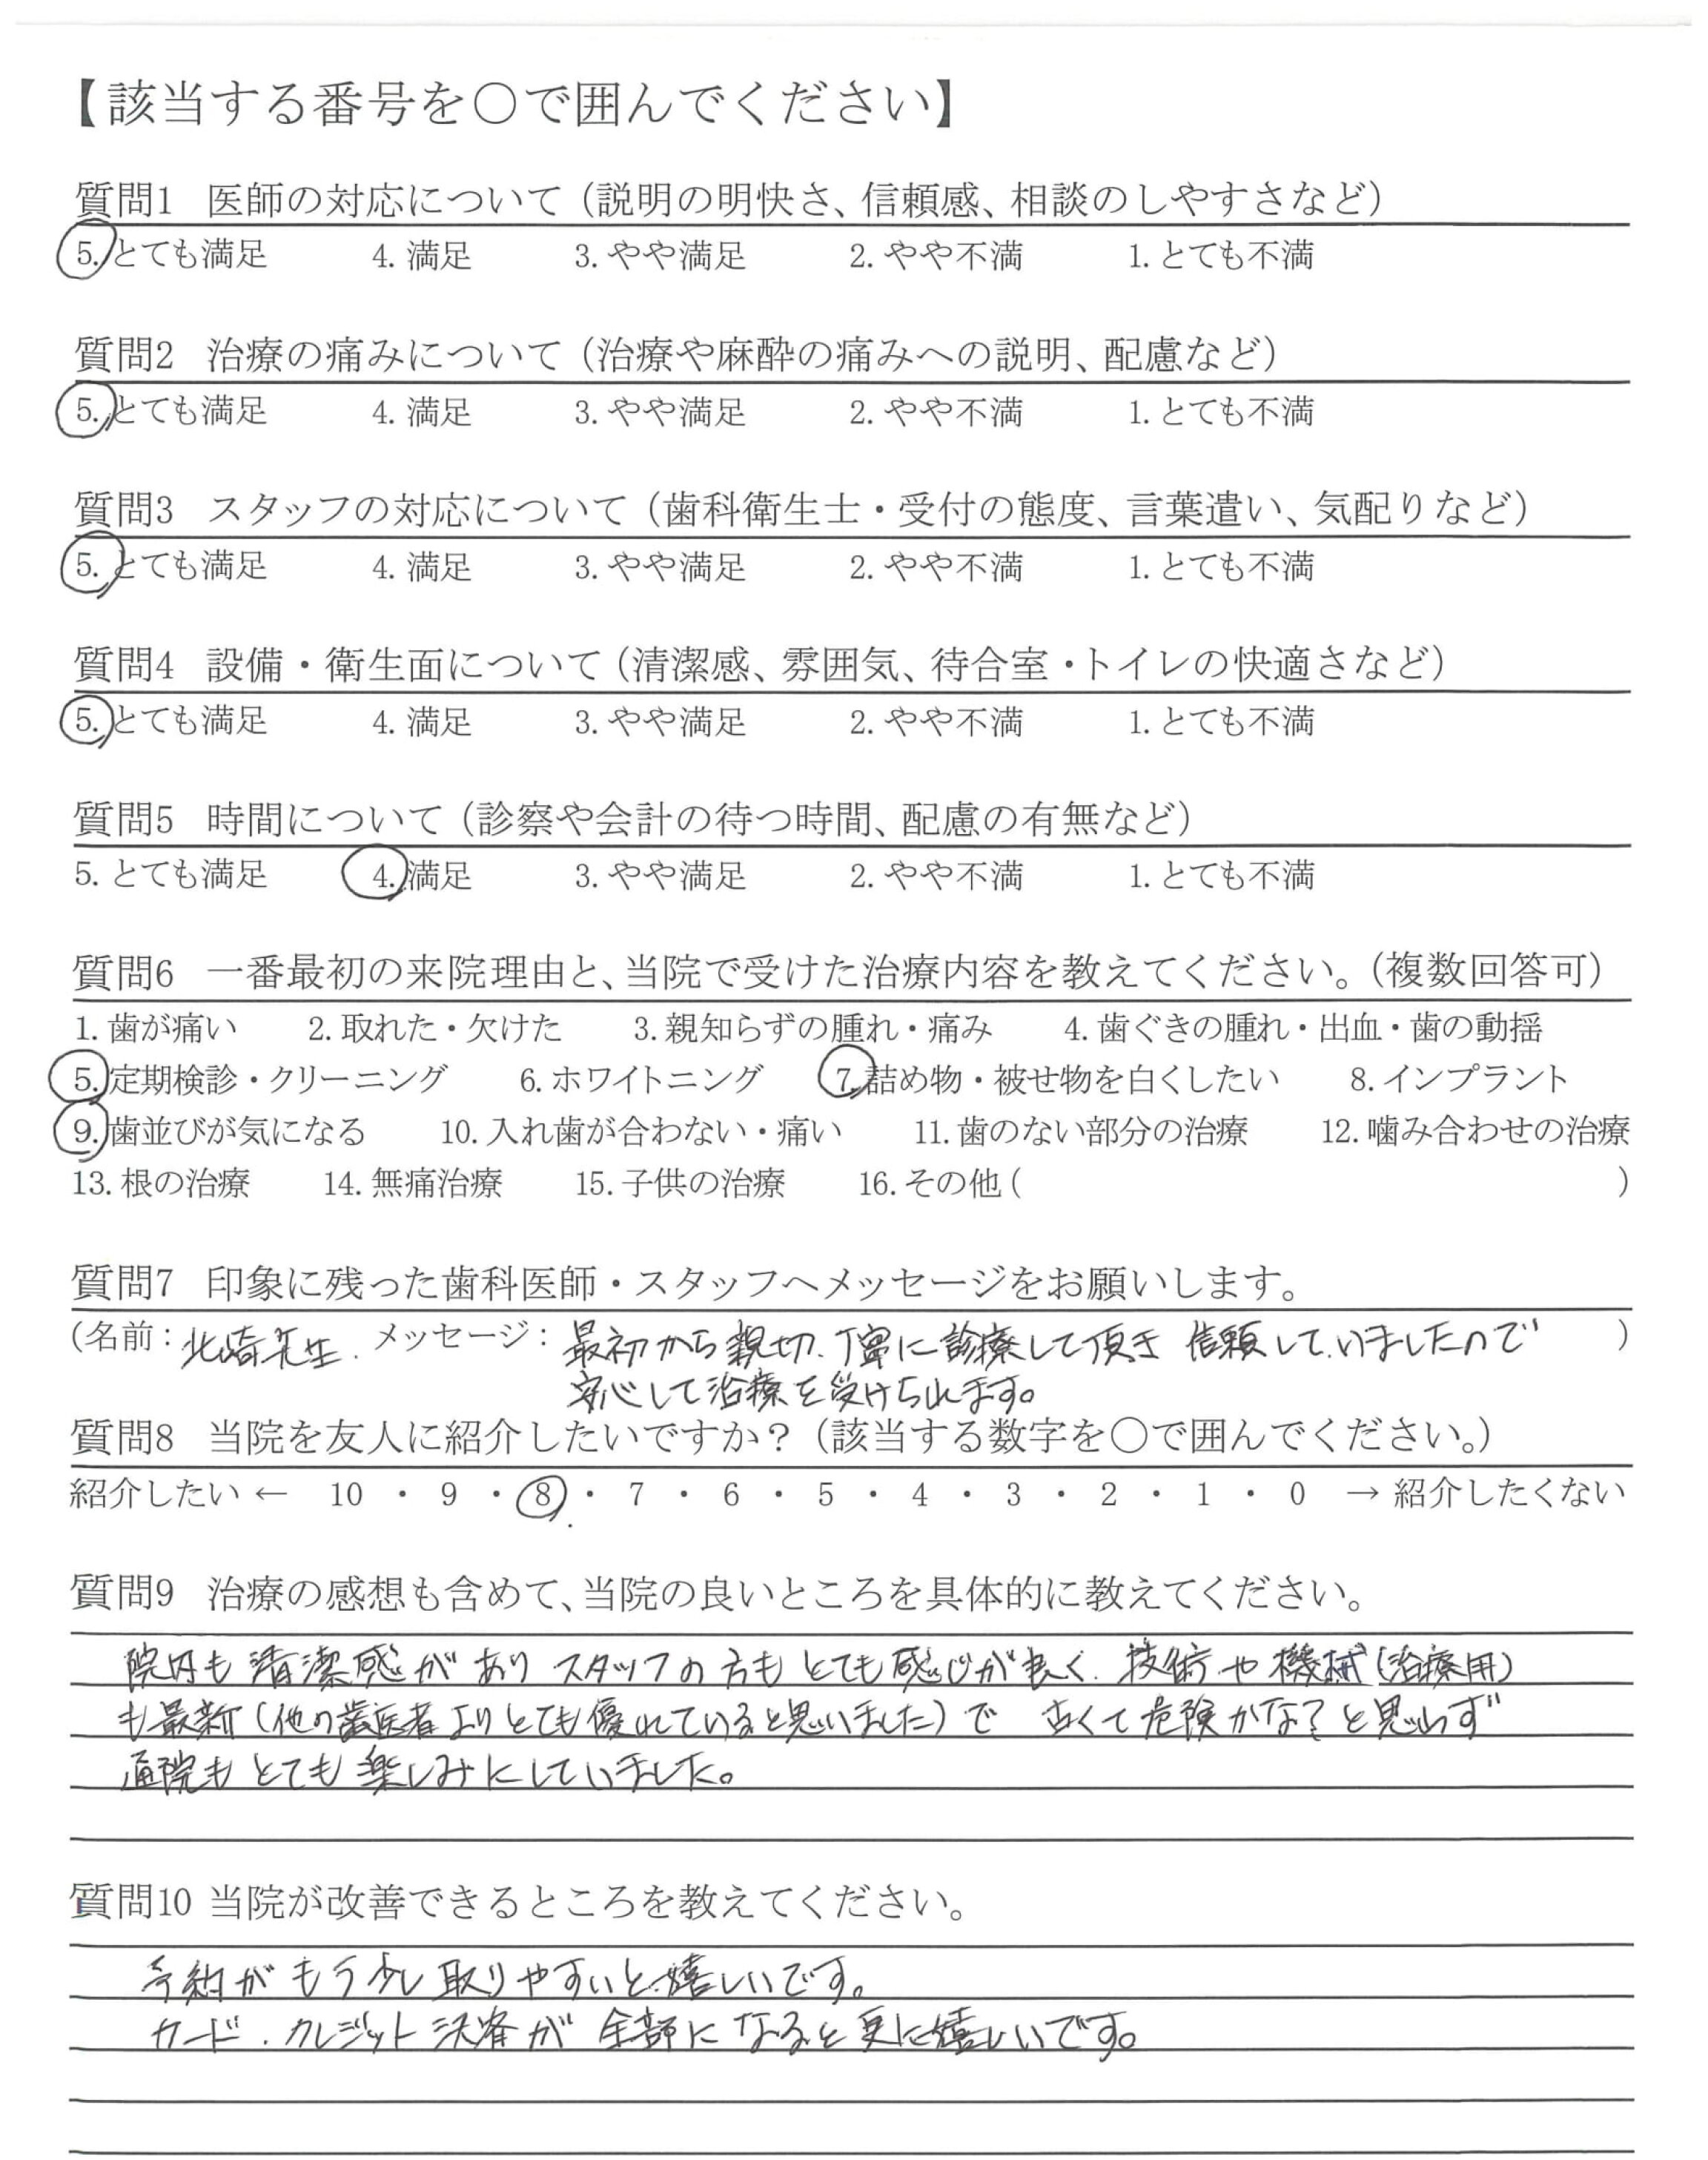 【該当する番号を〇で囲んでください】
質問1 医師の対応について（説明の明快さ、信頼感、相談のしやすさなど）
5. とても満足 4. 満足 3. やや満足 2. やや不満 1. とても不満
質問2 治療の痛みについて（治療や麻酔の痛みへの説明、配慮など）
5. とても満足 4. 満足 3. やや満足 2. やや不満 1. とても不満
質問3 スタッフの対応について（歯科衛生士・受付の態度、言葉遣い、気配りなど）
5. とても満足 4. 満足 3. やや満足 2. やや不満 1. とても不満
質問4 設備・衛生面について（清潔感、雰囲気、待合室・トイレの快適さなど）
5. とても満足 4. 満足 3. やや満足 2. やや不満 1. とても不満
質問5 時間について（診察や会計の待つ時間、配慮の有無など）
5. とても満足 4. 満足 3. やや満足 2. やや不満 1. とても不満
質問6 一番最初の来院理由と、当院で受けた治療内容を教えてください。（複数回答可）
1. 歯が痛い 2. 取れた・欠けた 3. 親知らずの腫れ・痛み 4. 歯ぐきの腫れ・出血・歯の動揺
5. 定期検診・クリーニング 6. ホワイトニング 7. 詰め物・被せ物を白くしたい 8. インプラント
9. 歯並びが気になる 10. 入れ歯が合わない・痛い 11. 歯のない部分の治療 12. 噛み合わせの治療
13. 根の治療 14. 無痛治療 15. 子供の治療 16. その他（ ）
質問7 印象に残った歯科医師・スタッフへメッセージをお願いします。
（名前：北崎先生. メッセージ：最初から親切、丁寧に診療して頂き 信頼していましたので ）
安心して治療を受けられます。
質問8 当院を友人に紹介したいですか？（該当する数字を〇で囲んでください。）
紹介したい ← 10 ・ 9 ・ 8 ・ 7 ・ 6 ・ 5 ・ 4 ・ 3 ・ 2 ・ 1 ・ 0 → 紹介したくない
質問9 治療の感想も含めて、当院の良いところを具体的に教えてください。
院内も清潔感があり スタッフの方もとても感じが良く、技術や機械（治療用）
も最新（他の歯医者よりとても優れていると思いました）で 古くて危険かな？と思わず
通院もとても楽しみにしていました。
質問10 当院が改善できるところを教えてください。
予約がもう少し取りやすいと嬉しいです。
カード．クレジット決済が全部になると更に嬉しいです。